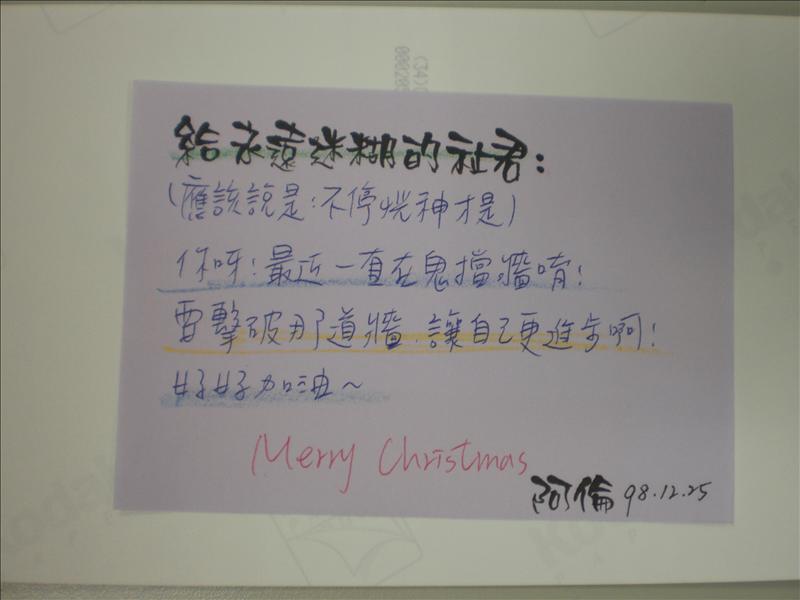 (34)0
000205
給永遠迷糊的社君：
(應該說是：不停恍神才是)
你呀！最近一直在鬼擋牆唷！
要擊破那道牆，讓自己更進步啊！
好好加油～
Merry Christmas
阿倫 98.12.25